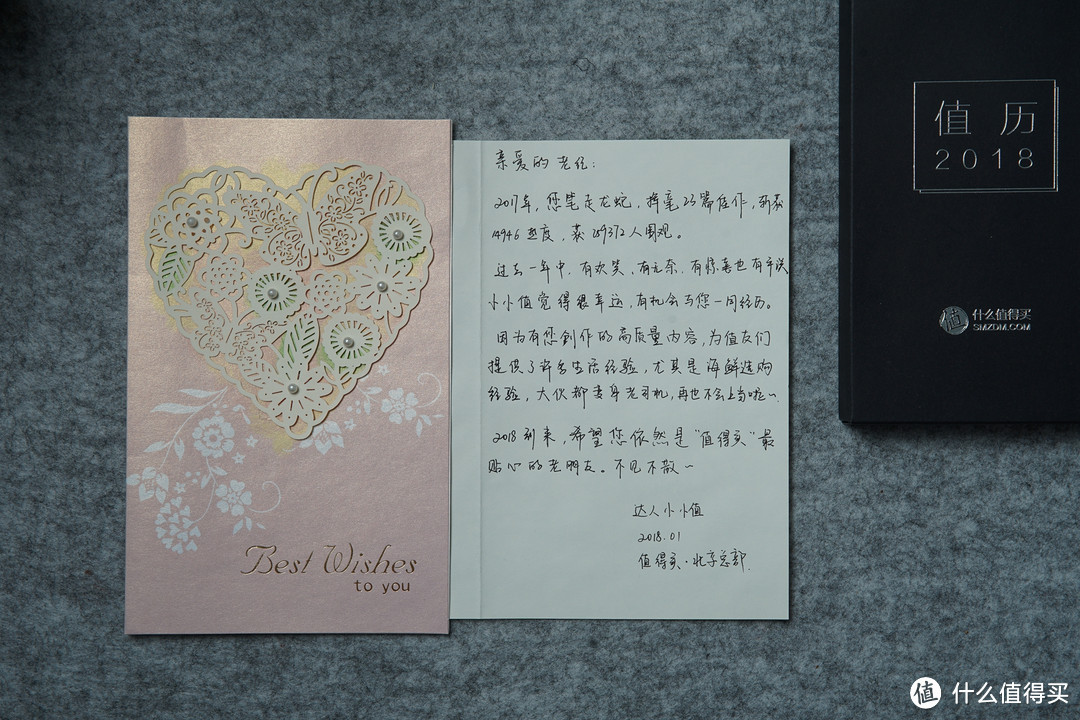 Best Wishes
to you
亲爱的老
2017年，您笔走龙蛇，挥毫23篇佳作，斩获
14946热度，素259372人围观。
过去一年中，有欢笑，有无奈，有惊喜也有辛酸
小小值觉得很幸运，有机会与您一同经历。
因为有您创作的高质量内容，为值友们
提供了许多生活经验，尤其是海鲜选购
经验，大伙都变身老司机，再也不会上当啦～
2018到来，希望您依然是“值得买”最
贴心的老朋友。不见不散～
达人小小值
2018.01
值得买·北京总部
值历
2018
值 什么值得买
SMZDM.COM
值 什么值得买